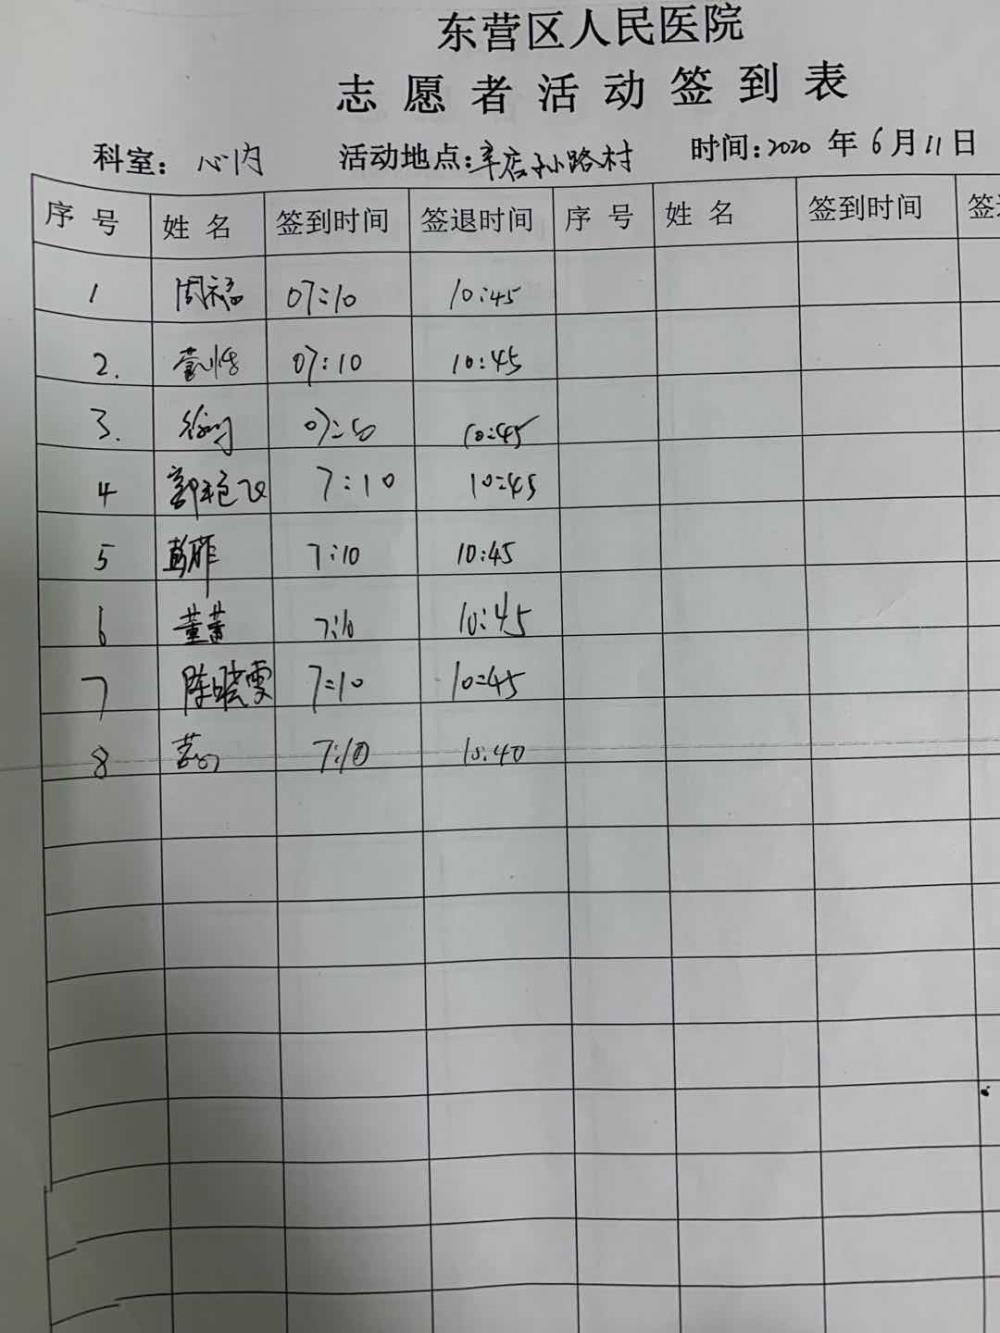 东营区人民医院
志愿者活动签到表
科室：心内 活动地点：辛店孙路村 时间：2020年6月11日
序号 姓名 签到时间 签退时间 序号 姓名 签到时间
1 周福 07:10 10:45
2. 07:10 10:45
3. 10:45
4 7:10 10:45
5 7:10 10:45
6 董蕾 7:10 10:45
7 陈晓雯 7:10 10:45
8 7:10 10:40